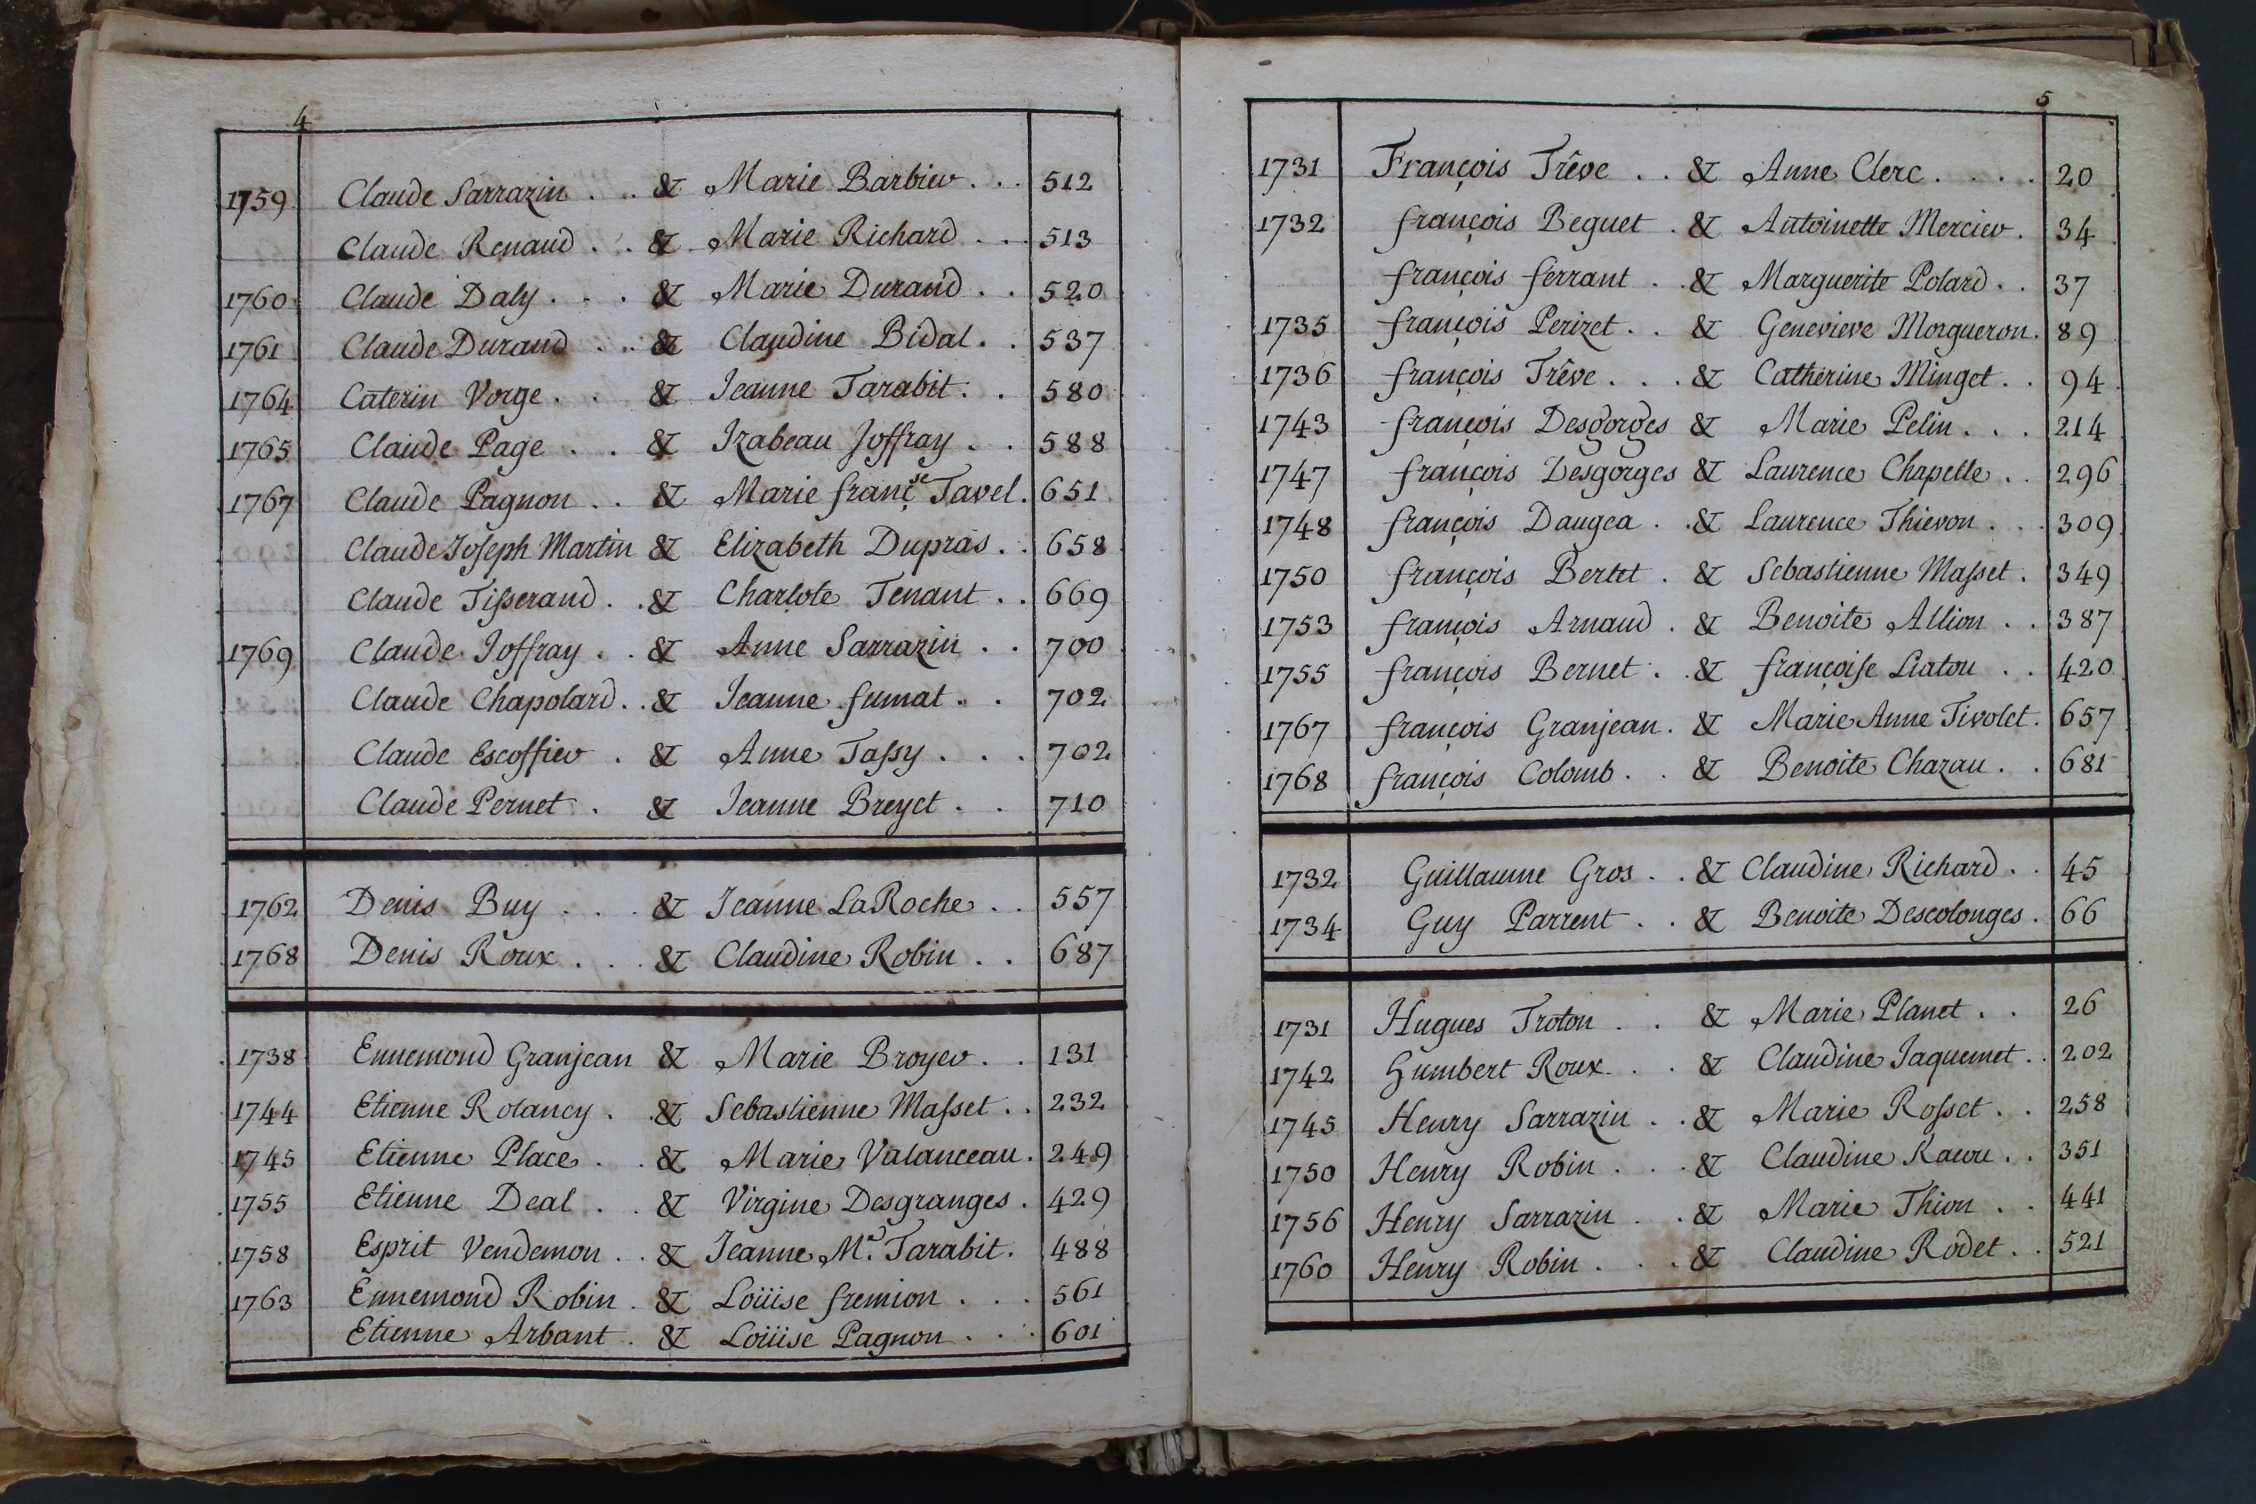 4
1759 Claude Sarrazin . . . & Marie Barbier . . . 512
Claude Renaud . . & Marie Richard . . . 513
1760 Claude Daly . . . & Marie Durand . . 520
1761 Claude Durand . . . & Claudine Bidal . . 537
1764 Caterin Vorge . . & Jeanne Tarabit . . 580
1765 Claude Page . . & Izabeau Joffray . . 588
1767 Claude Pagnon . . & Marie franç.se Tavel . 651
Claude Joseph Martin & Elizabeth Dupras . . 658
Claude Tisserand . . & Charlote Tenant . . 669
1769 Claude Joffray . . & Anne Sarrazin . . 700
Claude Chapolard . . & Jeanne fumat . . 702
Claude Escoffier . & Anne Tassy . . . 702
Claude Pernet . & Jeanne Breyet . . 710
1762 Denis Buy . . . & Jeanne LaRoche . . 557
1768 Denis Roux . . . & Claudine Robin . . 687
1738 Ennemond Granjean & Marie Broyer . . 131
1744 Etienne Rolancy . . & Sebastienne Masset . . 232
1745 Etienne Place . . & Marie Valanceau . 249
1755 Etienne Deal . . & Virgine Desgranges . 429
1758 Esprit Vendemon . . & Jeanne M.e Tarabit . 488
1763 Ennemond Robin . & Loüise fremion . . . 561
Etienne Arbant . & Loüise Pagnon . . . 601
5
1731 François Trêve . . & Anne Clerc . . . . 20
1732 françois Beguet . & Antoinette Mercier . 34
françois ferrant . . & Marguerite Polard . . 37
1735 françois Perizet . . & Genevieve Morgueron . 89
1736 françois Trêve . . . & Catherine Minget . . 94
1743 françois Desgorges & Marie Pelin . . . 214
1747 françois Desgorges & Laurence Chapelle . . 296
1748 françois Daugea . . & Laurence Thievon . . . 309
1750 françois Bertet . & Sebastienne Masset . 349
1753 françois Arnaud . & Benoite Allion . . 387
1755 françois Bernet . . & françoise Liatou . . 420
1767 françois Granjean . & Marie Anne Tivolet . 657
1768 françois Colomb . . & Benoite Chazau . . 681
1732 Guillaume Gros . . & Claudine Richard . . 45
1734 Guy Parrent . . & Benoite Descolonges . 66
1731 Hugues Troton . . & Marie Planet . . 26
1742 Humbert Roux . . . & Claudine Jaquemet . . 202
1745 Henry Sarrazin . . & Marie Rosset . . 258
1750 Henry Robin . . . & Claudine . . 351
1756 Henry Sarrazin . . & Marie Thion . . 441
1760 Henry Robin . . . & Claudine Rodet . . 521